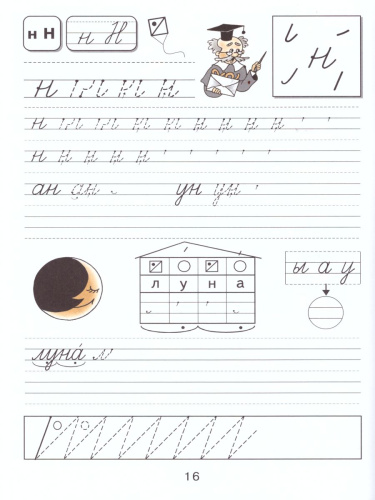 н Н н Н н
н н н н
н н н н н н н н н
н н н н н
ан ан ун ун
ы а у
л у н а
луна́ л
16